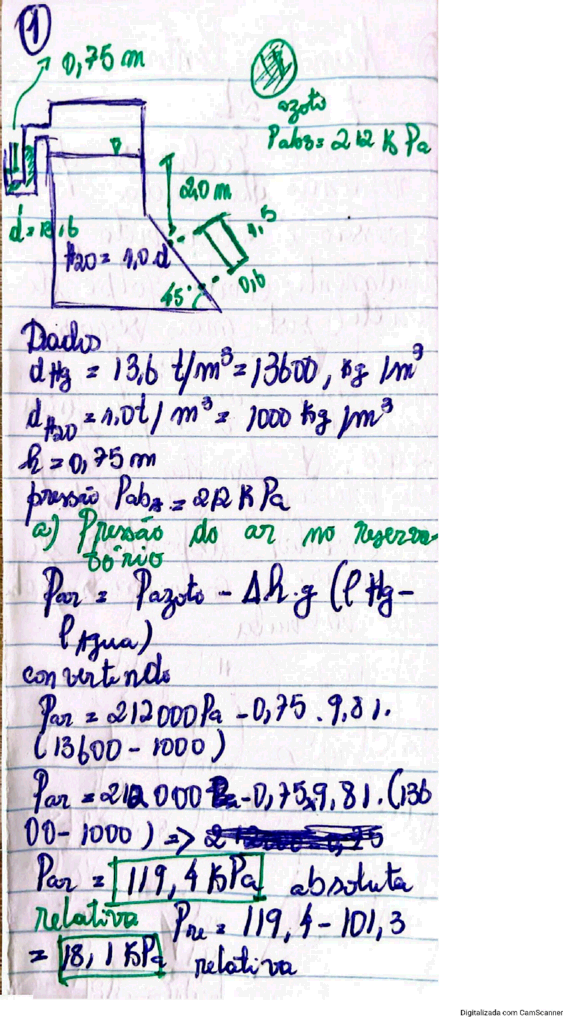 1
0,75 m
azoto
Pabs = 212 KPa
2,0 m
1,5
d = 13,6
H20 = 1,0 d
0,6
45°
Dados
dHg = 13,6 t/m³ = 13600, Kg /m³
dH20 = 1,0t/m³ = 1000 Kg /m³
h = 0,75 m
pressão Pabs = 212 KPa
a) Pressão do ar no reserva-
tório
Par = Pazoto - Δh.g (ρHg-
ρAgua)
convertendo
Par = 212000Pa - 0,75 . 9,81.
(13600 - 1000)
Par = 212000 -0,75x9,81.(136
00-1000) =>
Par = 119,4 KPa absoluta
relativa Pre = 119,4 - 101,3
= 18,1 KPa relativa
Digitalizada com CamScanner